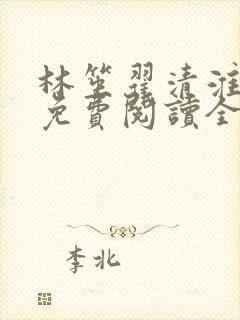 林笙翟清淮
免費閱讀全
李北